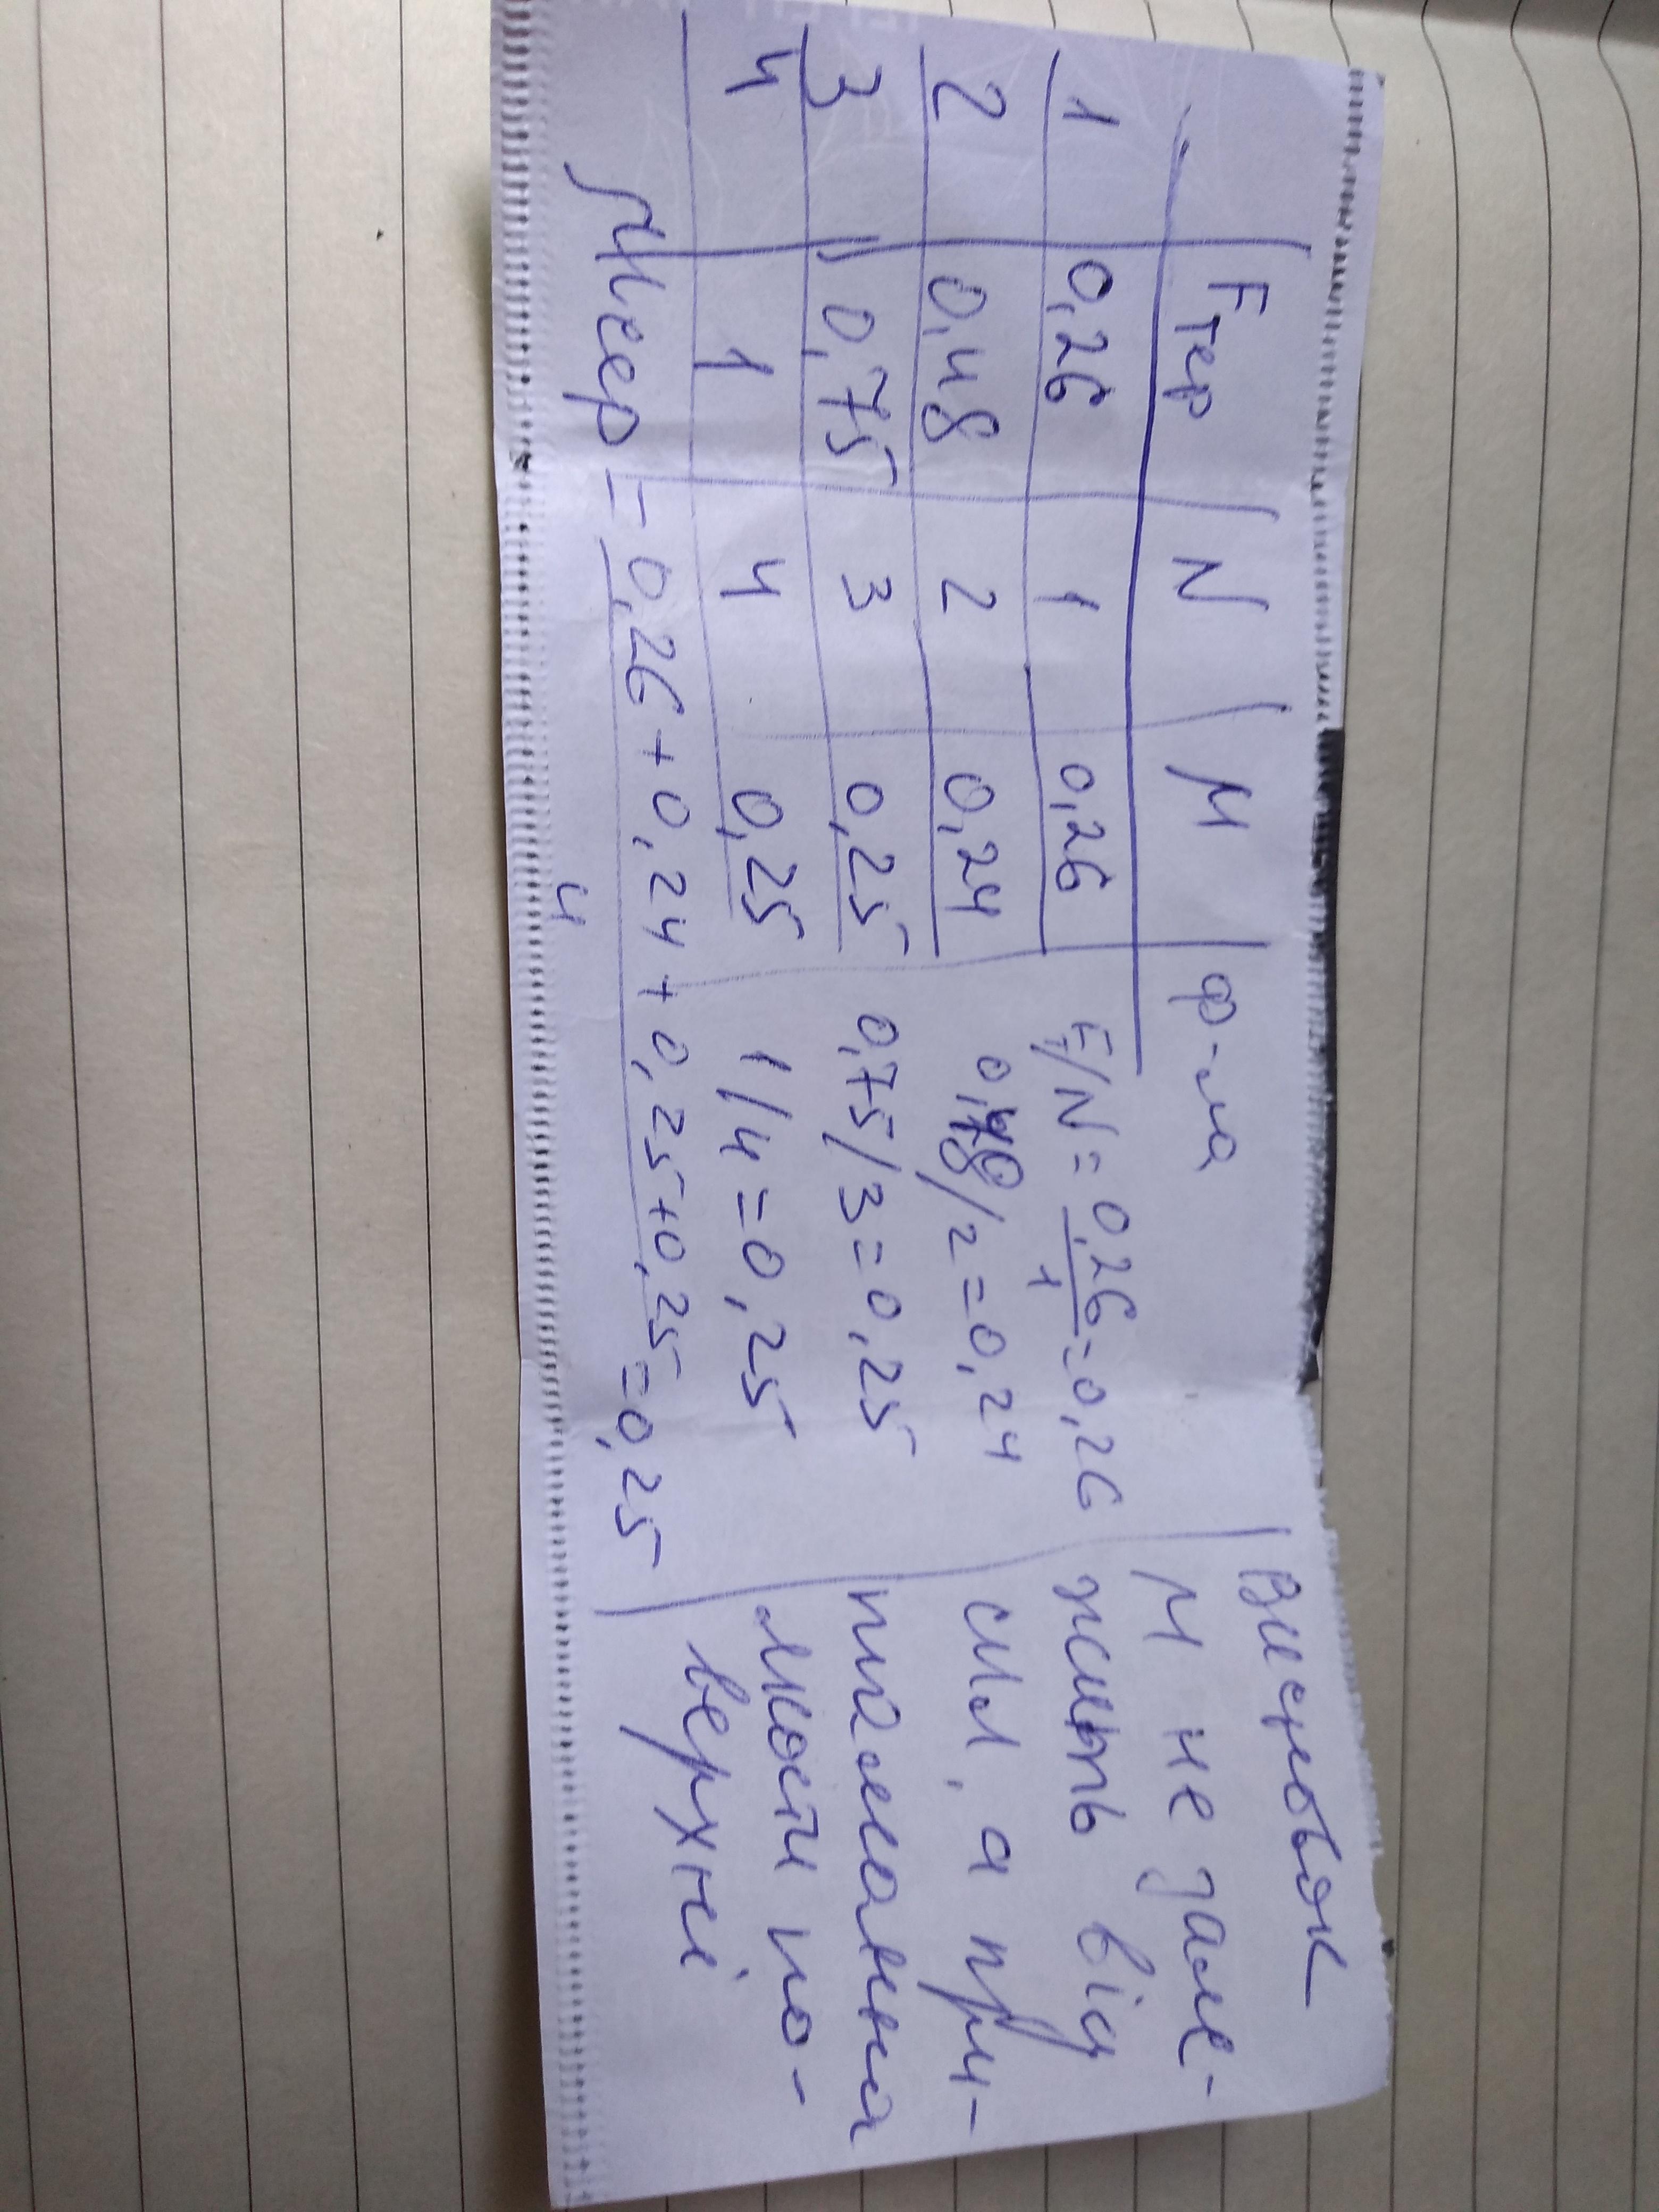 Fтер N M ф-ла Висновок
1 0,26 1 0,26 F/N = 0,26/1 = 0,26
2 0,48 2 0,24 0,48/2 = 0,24
3 0,75 3 0,25 0,75/3 = 0,25
4 1 4 0,25 1/4 = 0,25
Мсер = 0,26 + 0,24 + 0,25 + 0,25 = 0,25
4
M не зале-
жить від
сил, а при-
таманна
якості по-
верхні